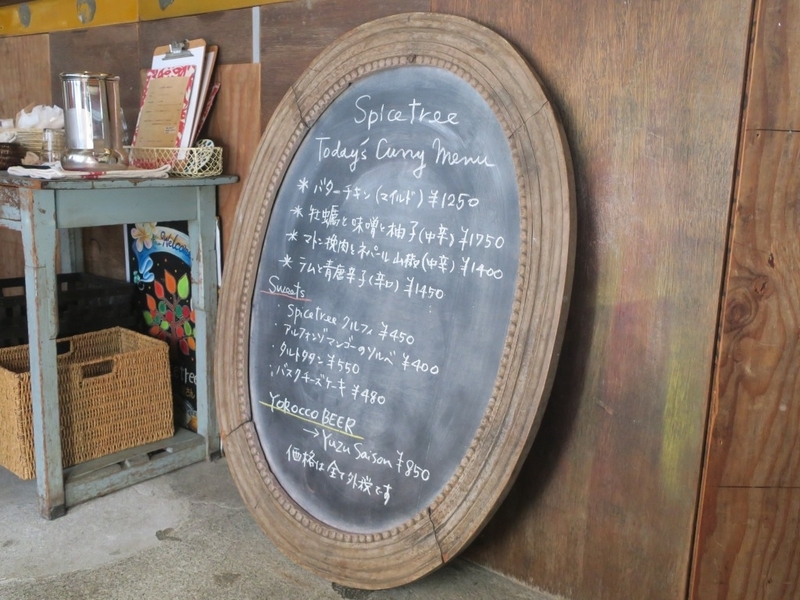 Spicetree
Today's Curry Menu
* バターチキン(マイルド) ¥1250
* 牡蠣と味噌と柚子(中辛) ¥1750
* マトン挽肉とネパール山椒(中辛) ¥1400
* ラムと青唐辛子(辛口) ¥1450
Sweets
・Spicetree クルフィ ¥450
・アルフォンソマンゴーのソルベ ¥400
・タルトタタン ¥550
・バスクチーズケーキ ¥480
YOROCCO BEER
→ Yuzu Saison ¥850
価格は全て外税です
Welcome